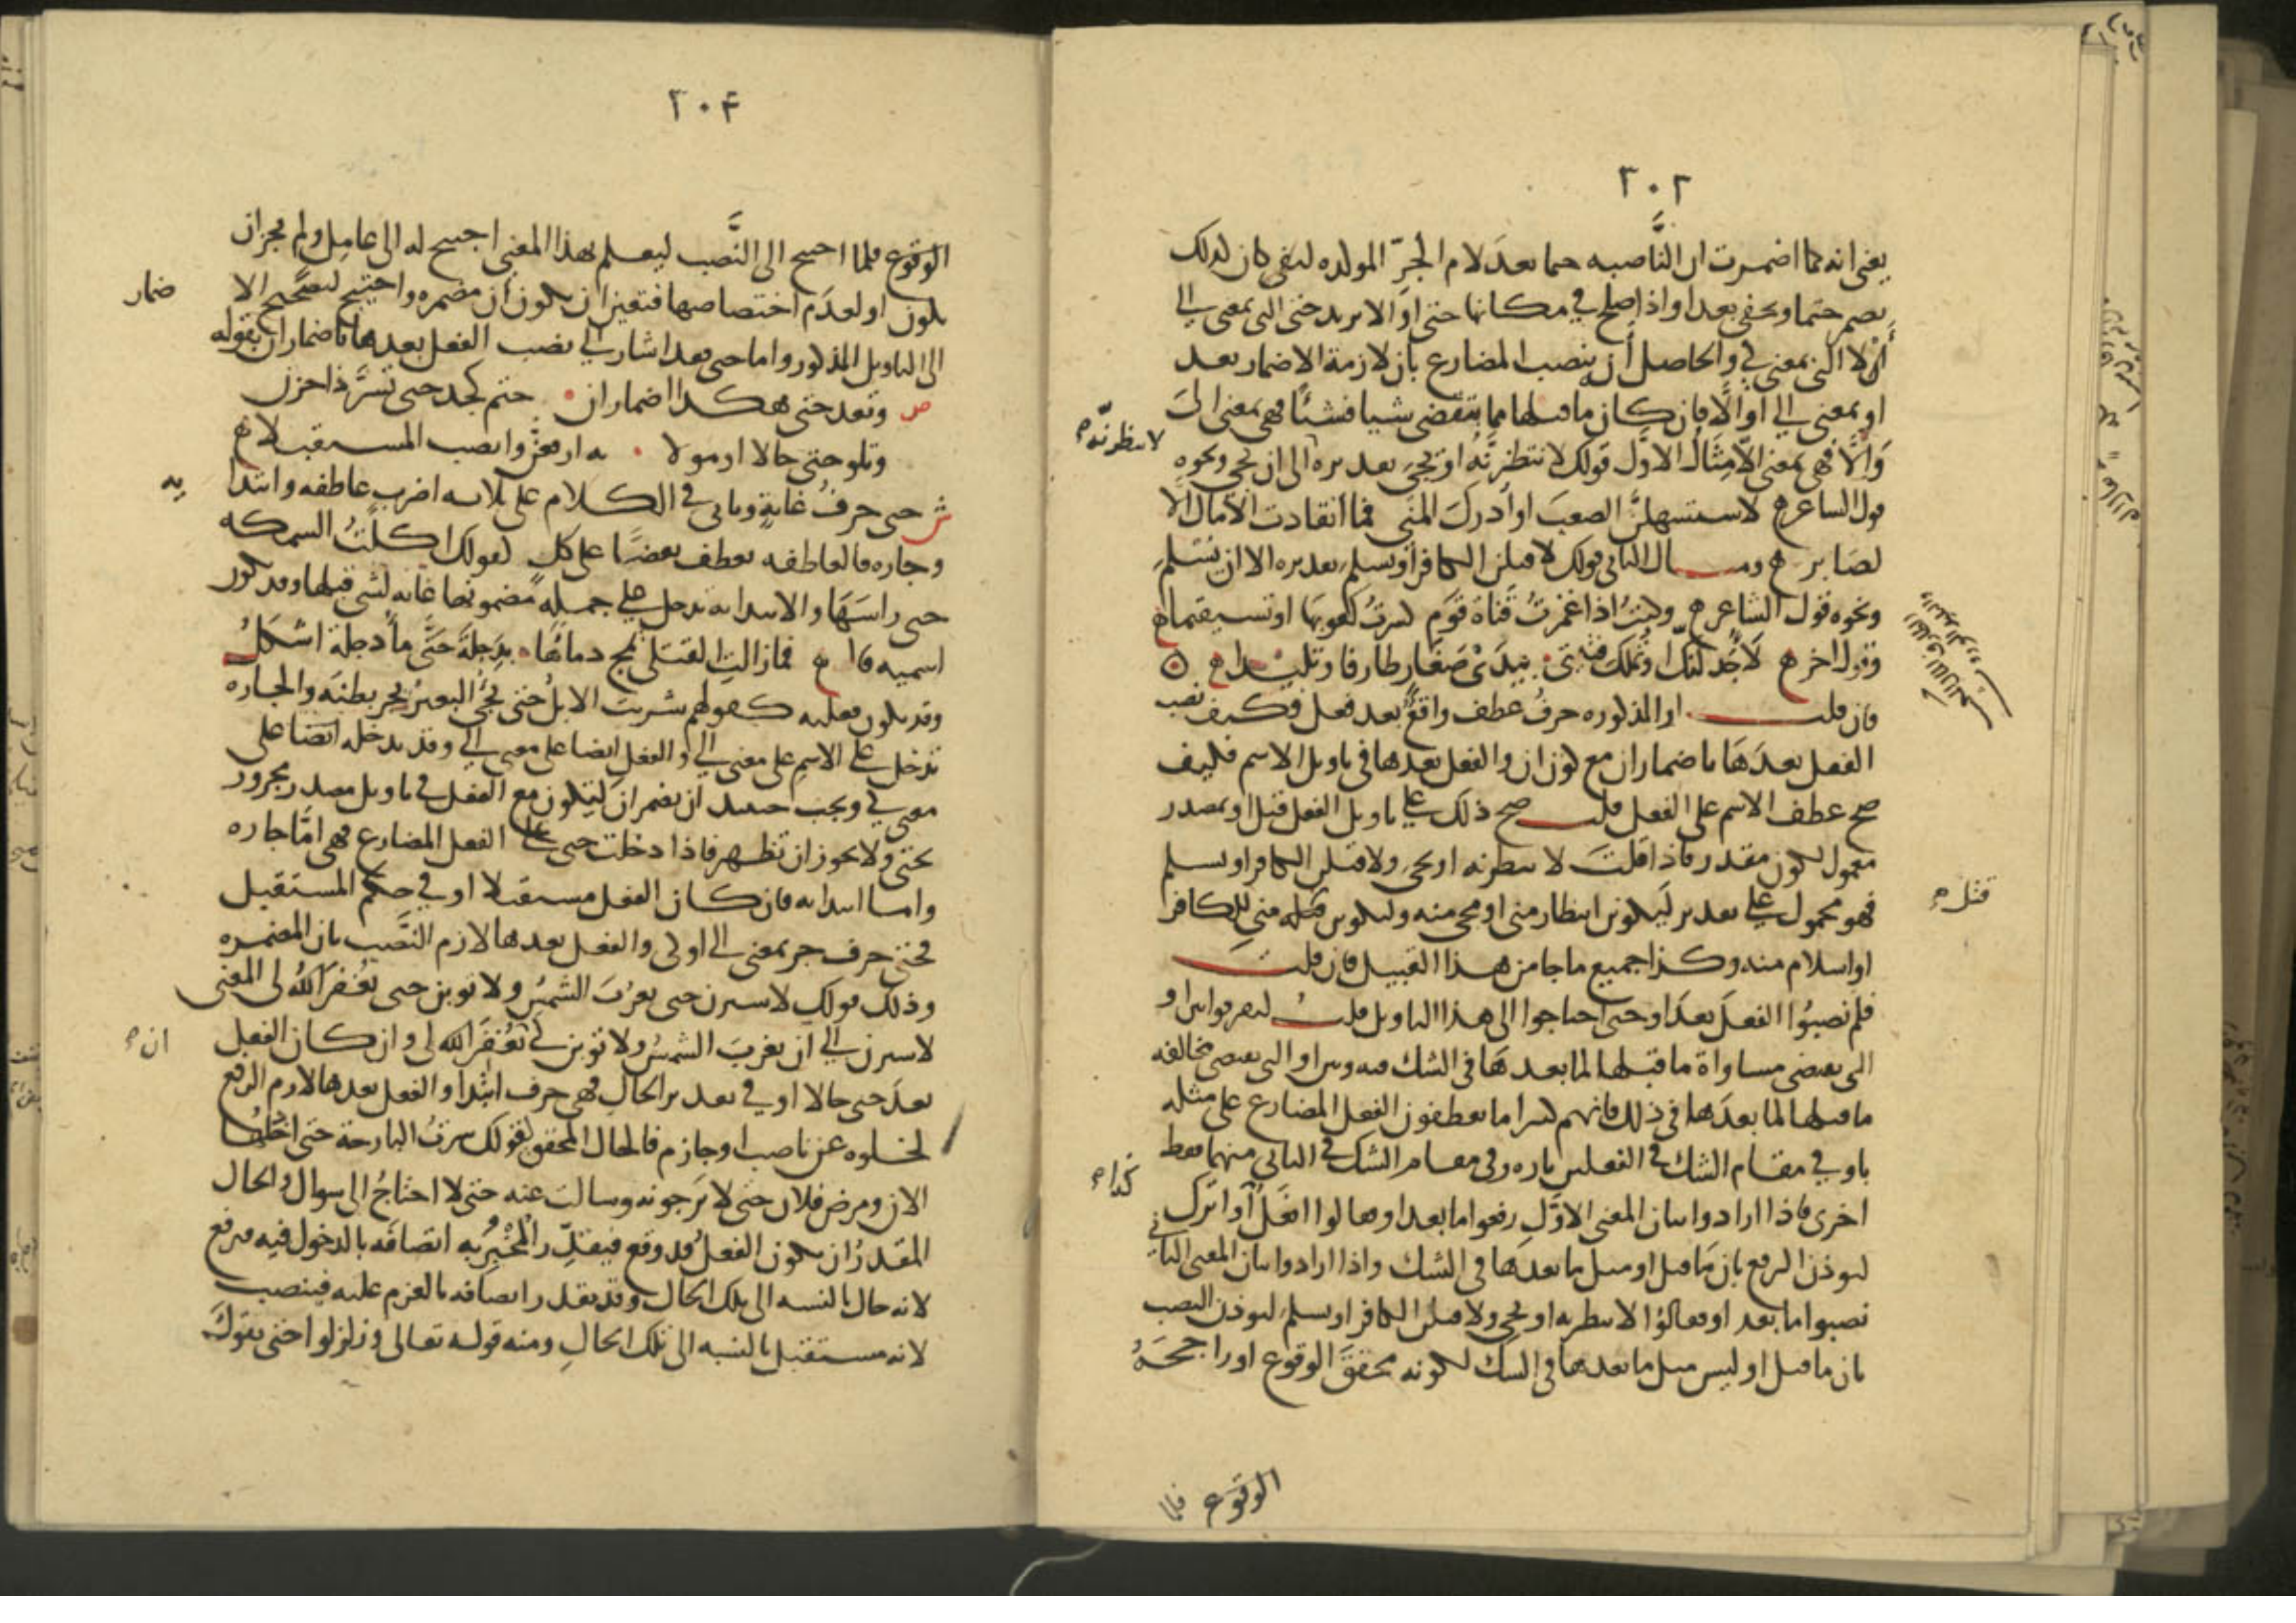 ٣٠٢
يعنى انه كما اضمرت ان الناصبه حتما بعدَ لام الجرّ المولده لنفى كان لذلك
تضمر حتما وتخفى بعد او اذا صلح في مكانها حتى او الا يريد حتى التى بمعنى الى
او لا التى بمعنى كي والحاصل أن ينصب المضارع بأن لازمة الاضمار بعد
او بمعنى الى او الّا فإن كان ما قبلها مما ينقضى شيا فشئًا فهى بمعنى الىَ
وَاِلّا فهى بمعنى الاّ مِثَالُ الاوّل قولك لا نتظرنَّهُ او يجىَ تقديره الى ان يجى ونحوه
لا نتظرنّه
قول الشاعر لاستسهلنَّ الصعبَ او أدركَ المنَى فما انقادت الآمال الا
لصَابر ومثال الثانى قولك لاقتلن الكافر او يسلم تقديره الا ان يسلم
ونحوه قول الشاعر وكنتُ اذا غمزتُ قناة قَوم كسرتُ كعوبهَا او تستقيما
وقول اخر لَاُجَدِّلَنَّكَ او تملك فتيتى بيدَىْ صَغَار طارفا وتليدا
فان قلت او المذكوره حرفُ عطف واقعٌ بعد فعل فكيف نصب
الفعل بعدَهَا باضمار ان مع كون ان والفعل بعدها في تاويل الاسم فكيف
صح عطف الاسم على الفعل قلت صح ذلك على تاويل الفعل قبل او بمصدر
معمول لكون مقدر فاذا قلتَ لانتظرنه او يجى ولاقتلن الكافر او يسلم
فهو محمول على تقدير ليكونن انتظار منى او مجى منه وليكونن قتله منى للكافر
قتل
او اسلام منه وكذا جميع ما جا من هذا القبيل فان قلتَ
فلم نصبُوا الفعلَ بعدَ او حتى احتاجوا الى هذا التاويل قلتُ ليفرقوا بين او
التى تقتضى مساواة ما قبلها لما بعدهَا فى الشك فيه وبين او التى تقتضى مخالفه
ما قبلها لما بعدَها فى ذلك فانهم كثيرا ما يعطفون الفعل المضارع على مثله
باو في مقام الشك فى الفعلين تاره وفى مقام الشك فى الثانى منهما فقط
اخرى فاذا ارادوا بيان المعنى الاوّل رفعوا ما بعد او فقالوا افعَلُ او اترك
كذا
ليوذن الرفع بان مَا قبل او مثل ما بعدهَا فى الشك واذا ارادوا بيان المعنى الثاني
نصبوا ما بعد او فقالوُا لانتظرنه او يجى ولاقتلن الكافر او يسلم ليوذن النصب
بان ما قبل او ليس مثل ما بعدها فى الشك لكونه محققَ الوقوع او راجحَهُ
الوقوع فلما
٣٠۴
الوقوع فلما احتيج الى النَّصب ليعلم هذا المعنى احتيج له الى عامِل ولم يجز ان
يكون او لعدَم اختصاصها فتعين ان يكون أن مضمره واحتيج لتصحيح الا
ضمار
الى التاويل المذكور واما حتى فقد اشار الى نصب الفعل بعدها باضمار ان بقوله
ص وبعد حتى هكذا اضمار ان حتم كجد حتى تسرَّ ذا حزن
وتلو حتى حالا او مولا به ارفعنَّ وانصب المستقبلا
ش حتى حرفُ غايةٍ وياتى في الكلام على ثلاثه اضرب عاطفه وابتدا
يه
وجاره فالعاطفه تعطف بعضًا على كل كقولك اكلتُ السمكه
حتى راسَهَا والابتدايه تدخل على جملةٍ مضمونها غايه لشى قبلها وقد تكون
اسميه كا فما زالتِ القتلى تمج دماءَها بدِجلةَ حَتَّى ماء دجلة اشكلُ
وقد يكون فعليه كقولهم شربت الابلُ حتى يجُئُ البعيرُ يجر بطنَه والجاره
تدخل على الاسم على معنى الى والفعل ايضا على معنى الى وقد تدخله ايضا على
معنى كي ويجب حينئذ ان تضمر ان ليتكون مع الفعل في تاويل مصدر مجرور
بحتى ولا يجوز ان تظهر فاذا دخلت حتى على الفعل المضارع فهى امّا جاره
واما ابتدايه فان كان الفعل مستقبلا او في حكم المستقبل
فحتى حرف جر بمعنى الى او كى والفعل بعدها لازم النَّصب بان المضمره
وذلك قولك لاسيرن حتى تغرُبَ الشمسُ ولاتوبن حتى يغفرَ اللهُ لى المعنى
لاسيرن الى ان تغربَ الشمسُ ولاتوبن لى يغفرَ الله لى وان كان الفعل
ان
بعدَ حتى حالا او في تقدير الحالِ فهى حرف ابتدا والفعل بعدها لازم الرفع
لخلوه عن ناصب او جازم فالحال المحقق لقولك سرتُ البارحة حتى ادخلُها
الان ومرض فلان حتى لا يَرجونه وسالتَ عنه حتى لا احتاجُ الى سوال والحال
المقدرُ ان يكون الفعلُ قد وقع فيقدّر المُخْبِرُ به اتصافَه بالدخول فيه فيرفع
لانه حال بالنسبه الى تلك الحال وقد يقدر اتصافه بالعزم عليه فينصب
لانه مستقبل بالنسبه الى تلك الحالِ ومنه قوله تعالى وزلزلوا حتى يقولَ